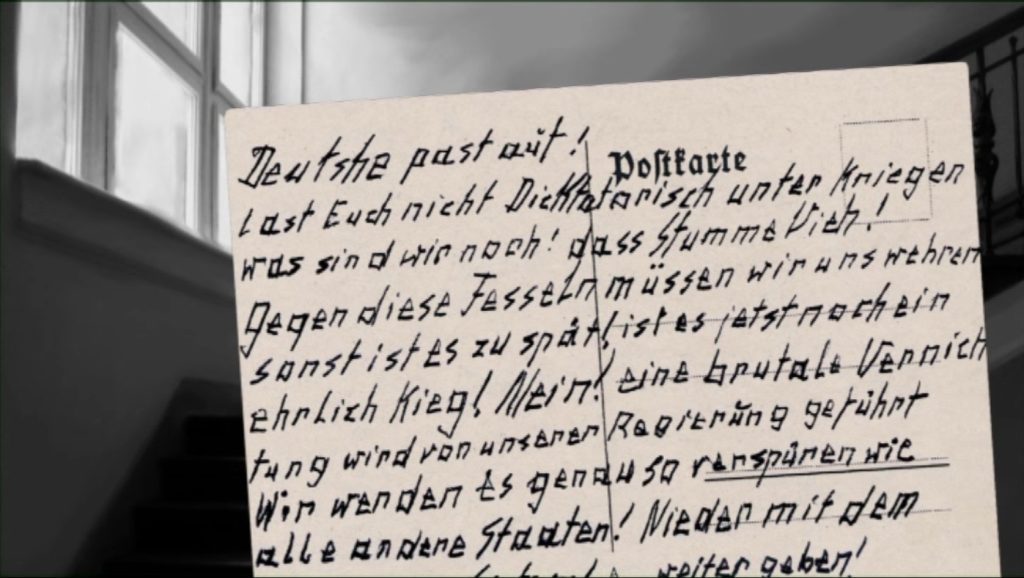 Postkarte
Deutshe past aŭf!
last Euch nicht Dicktatarisch unter Kriegen
was sind wir noch! dass Stumme Vieh!
Gegen diese Fesseln müssen wir uns wehren
sonst ist es zu spät! ist es jetst noch ein
ehrlich Kieg! Nein! eine brutale Vernich
tung wird von unserer Regierŭng geführt
Wir werden Es genau so verspüren wie
alle andere Staaten! Nieder mit dem
weiter geben!